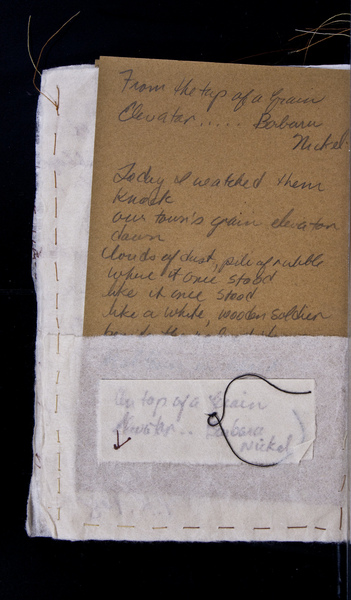 From the top of a Grain
Elevator..... Barbara
Nickel
Today I watched them
knock
our town's grain elevator
down
clouds of dust, pile of rubble
where it once stood
like it once stood
like a white, wooden soldier
top of a Grain
Elevator.. Barbara
Nickel